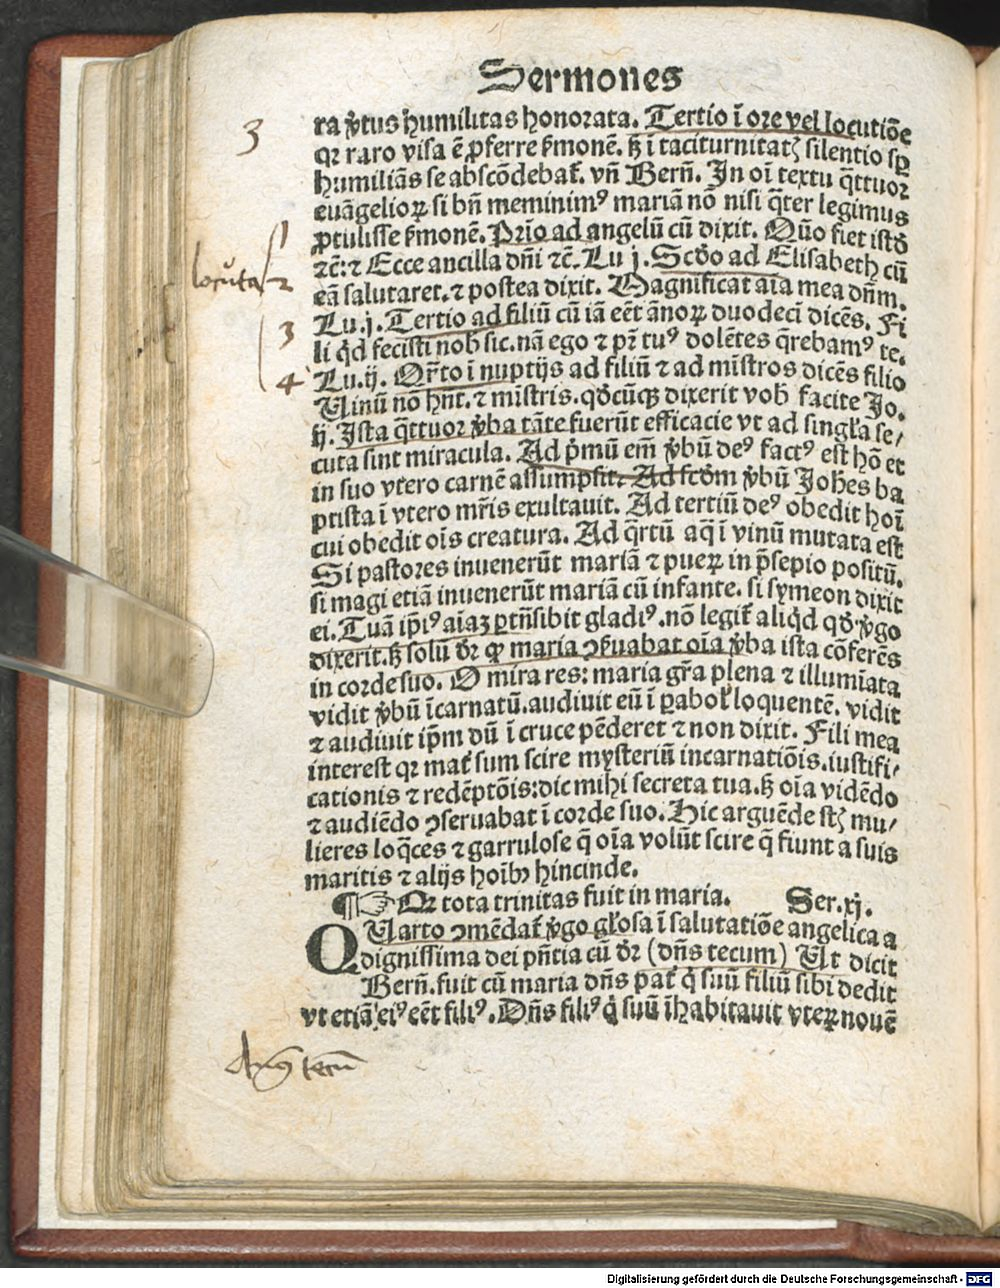 Sermones
ra v̓tus humilitas honorata. Tertio ī ore vel locutiōe
qꝛ raro visa ē ꝓferre s̓monē. sꝫ ī taciturnitatꝭ silentio sp̄
humiliās se abscōdebat̄. vn̄ Bern̄. In oī textu q̄ttuor
euāgelioꝝ si bn̄ meminimꝰ mariā nō nisi q̄ter legimus
ꝓtulisse s̓monē. Prīo ad angelū cū dixit. Quō fiet istd̄
ꝛc̄: ꝛ Ecce ancilla dn̄i ꝛc̄. Lu j. Scd̄o ad Elisabeth cū
eā salutaret. ꝛ postea dixit. Magnificat aīa mea dn̄m.
Lu. j. Tertio ad filiū cū iā eēt ānoꝝ duodecī dicēs. Fi
li qd̓ fecisti nob̄ sic. nā ego ꝛ pr̄ tuꝰ dolētes q̄rebamꝰ te.
Lu. ij. Qr̄to ī nuptijs ad filiū ꝛ ad mīstros dicēs filio
Uinū nō hn̄t. ꝛ mīstris. qd̓cūqꝫ dixerit vob̄ facite Jo.
ij. Ista q̄ttuor v̓ba tāte fuerūt efficacie vt ad singl̓a se⸗
cuta sint miracula. Ad p̓mū em̄ v̓bū deꝰ factꝰ est hō et
in suo vtero carnē assumpsit. Ad scd̓m v̓bū Joh̄es ba
ptista ī vtero mr̄is exultauit. Ad tertiū deꝰ obedit hoī
cui obedit oīs creatura. Ad q̄rtū aq̄ ī vinū mutata est
Si pastores inuenerūt mariā ꝛ pueꝝ in p̄sepio positū.
si magi etiā inuenerūt mariā cū infante. si symeon dixit
ei. Tuā ip̄iꝰ aīaꝫ ꝑtn̄sibit gladiꝰ. nō legit̄ aliqd̓ qd̓ v̓go
dixerit. sꝫ solū dr̄ ꝙ maria ↄs̓uabat oīa v̓ba ista cōferēs
in corde suo. O mira res: maria gr̄a plena ꝛ illumīata
vidit v̓bū īcarnatū. audiuit eū ī ꝑabol̓ loquentē. vidit
ꝛ audiuit ip̄m dū ī cruce pēderet ꝛ non dixit. Fili mea
interest qꝛ mat̄ sum scire mysteriū incarnatiōis. iustifi⸗
cationis ꝛ redēptōis: dic mihi secreta tua. sꝫ oīa vidēdo
ꝛ audiēdo ↄseruabat ī corde suo. Hic arguēde st̄ mu⸗
lieres loq̄ces ꝛ garrulose q̄ oīa volūt scire q̄ fiunt a suis
maritis ꝛ alijs hoībꝫ hincinde.
¶ ☞ Qꝛ tota trinitas fuit in maria. Ser. xj.
QUarto ↄmēdat̄ v̓go gl̓osa ī salutatiōe angelica a
dignissima dei pn̄tia cū dr̄ (dn̄s tecum) Ut dicit
Bern̄. fuit cū maria dn̄s pat̄ q̓ suū filiū sibi dedit
vt etiā eiꝰ eēt filiꝰ. Dn̄s filiꝰ q̓ suū īhabitauit vteꝝ nouē
3
locuta
2
3
4
tecū
Digitalisierung gefördert durch die Deutsche Forschungsgemeinschaft - DFG